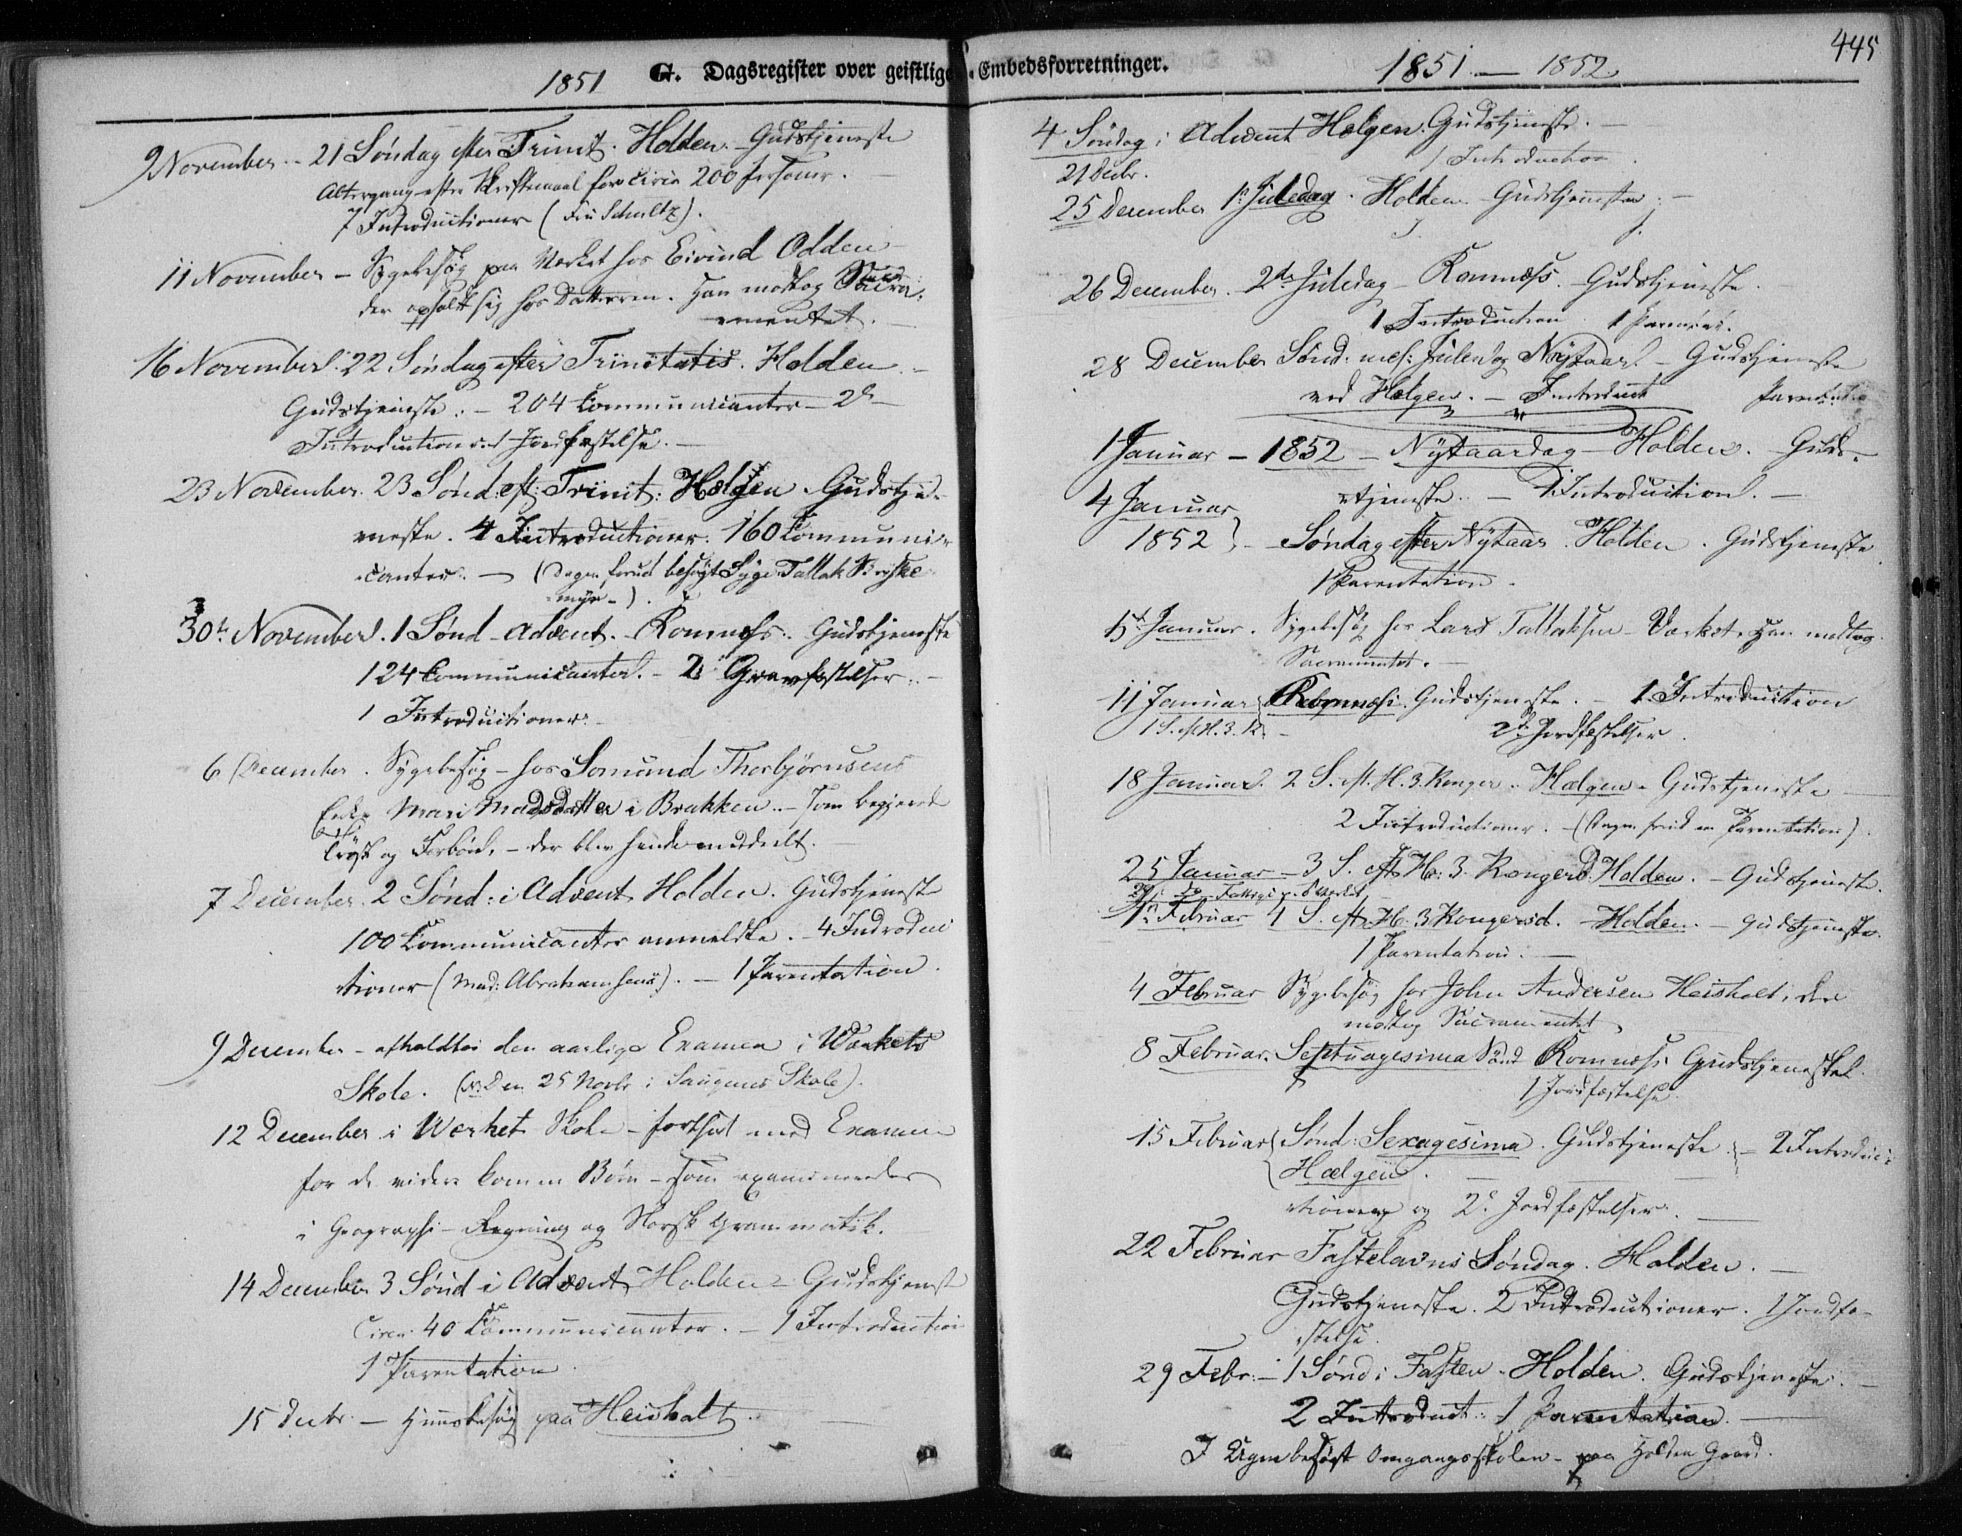 1851 G. Dagsregister over geistlige
9 November - 21 Søndag efter Trinit. Holden. Gudstjeneste
Altergang efter Skriftemaal for circa 200 Personer.
7 Introductioner (Fru Schultz).
11 November - Sygebesøg paa Værket hos Eivind Odden
der opholdt sig hos Datteren. Han modtog Sacra-
mentet.
16 November 22 Søndag efter Trinitatis. Holden.
Gudstjeneste. - 204 Communicanter - 2de
Introduction Jordfæstelse.
23 November. 23 Sønd. eft: Trinit: Helgen. Gudstje-
neste. 4 Introductioner. 160 Communi-
canter. - (Dagen forud besøgt Syge Tallak Briske
myr -).
30te November. 1 Sønd. Advent. - Romnæss. Gudstjeneste
124 Communicanter. - 2 Gravfæstelser. -
1 Introductioner.
6 December. Sygebesøg - hos Somund Thorbjørnsens
Enke Mari Madsdatter i Brækken. - som begjerede
Trøst og Forbøn, - der blev hende meddeelt.
7 December. 2 Sønd: i Advent Holden. Gudstjeneste
100 Communicanter anmeldte. - 4 Introduc
tioner (Mad: Abrahamsens). - 1 Parentation.
9 December - afholdtes den aarlige Examen i Værkets
Skole. (Den 25 Novbr i Skole).
12 December i Værkets Skole - fortsat med Examen
for de videre komne Børn - som examineredes
i Geographi - Regning og Norsk Grammatik.
14 December 3 Sønd i Advent Holden - Gudstjenest
Circa 40 Communicanter. - 1 Introduction
1 Parentation
15 Decbr. - Huusbesøg paa Heisholt.
Embedsforretninger. 1851 - 1852. 445
4 Søndag i Advent Helgen. Gudstjeneste. -
1 Introduction
21 Decbr.
25 December 1. Juledag. Holden. Gudstjeneste. -
26 December. 2de Juledag - Romnæss. Gudstjeneste.
1 Introduction. 1 Parentat.
28 December Sønd: mel: Juul og Nytaar. - Gudstjeneste
ved Helgen. - Introduct Parentatio
1 Januar - 1852 - Nytaarsdag - Holden. - Guds-
tjeneste. - 1 Introduction. -
4 Januar
1852 } - Søndag efter Nytaar. Holden. Gudstjeneste
1 Parentation.
5te Januar. Sygebesøg hos Lars Tallaksen - Værket. Han modtog
Sacramentet.
11 Januar Romnæss. Gudstjeneste. - 1 Introduction
1 S. eft H. 3. K. - 2de Jordfæstelser.
18 Januar. 2 S. eft. H. 3. Konger. Helgen. Gudstjeneste
2 Introductioner. - (Dagen forud en Parentation).
25 Januar - 3 S. eft H: 3. Kongers D. Holden. - Gudstjeneste.
1. Februar 4 S. eft H. 3 Kongers d. Holden. - Gudstjeneste.
1 Parentation. -
4 Februar Sygebesøg hos John Andersen Heisholt, der
modtog Sacramentet
8 Februar. Septuagesima Sønd Romnæss Gudstjeneste.
1 Jordfæstelse
15 Februar { Sønd: Sexagesima. Gudstjeneste. - 2 Introduc-
Helgen.
tioner og 2de Jordfæstelser.
22 Februar Fastelavns Søndag. Holden. -
Gudstjeneste. 2 Introductioner. 1 Jordfæ-
stelse.
29 Febr. - 1 Sønd i Fasten - Holden. Gudstjeneste.
2 Introduct. 1 Parentation.
I Ugen besøgt Omgangsskolen - paa Holden Gaard.